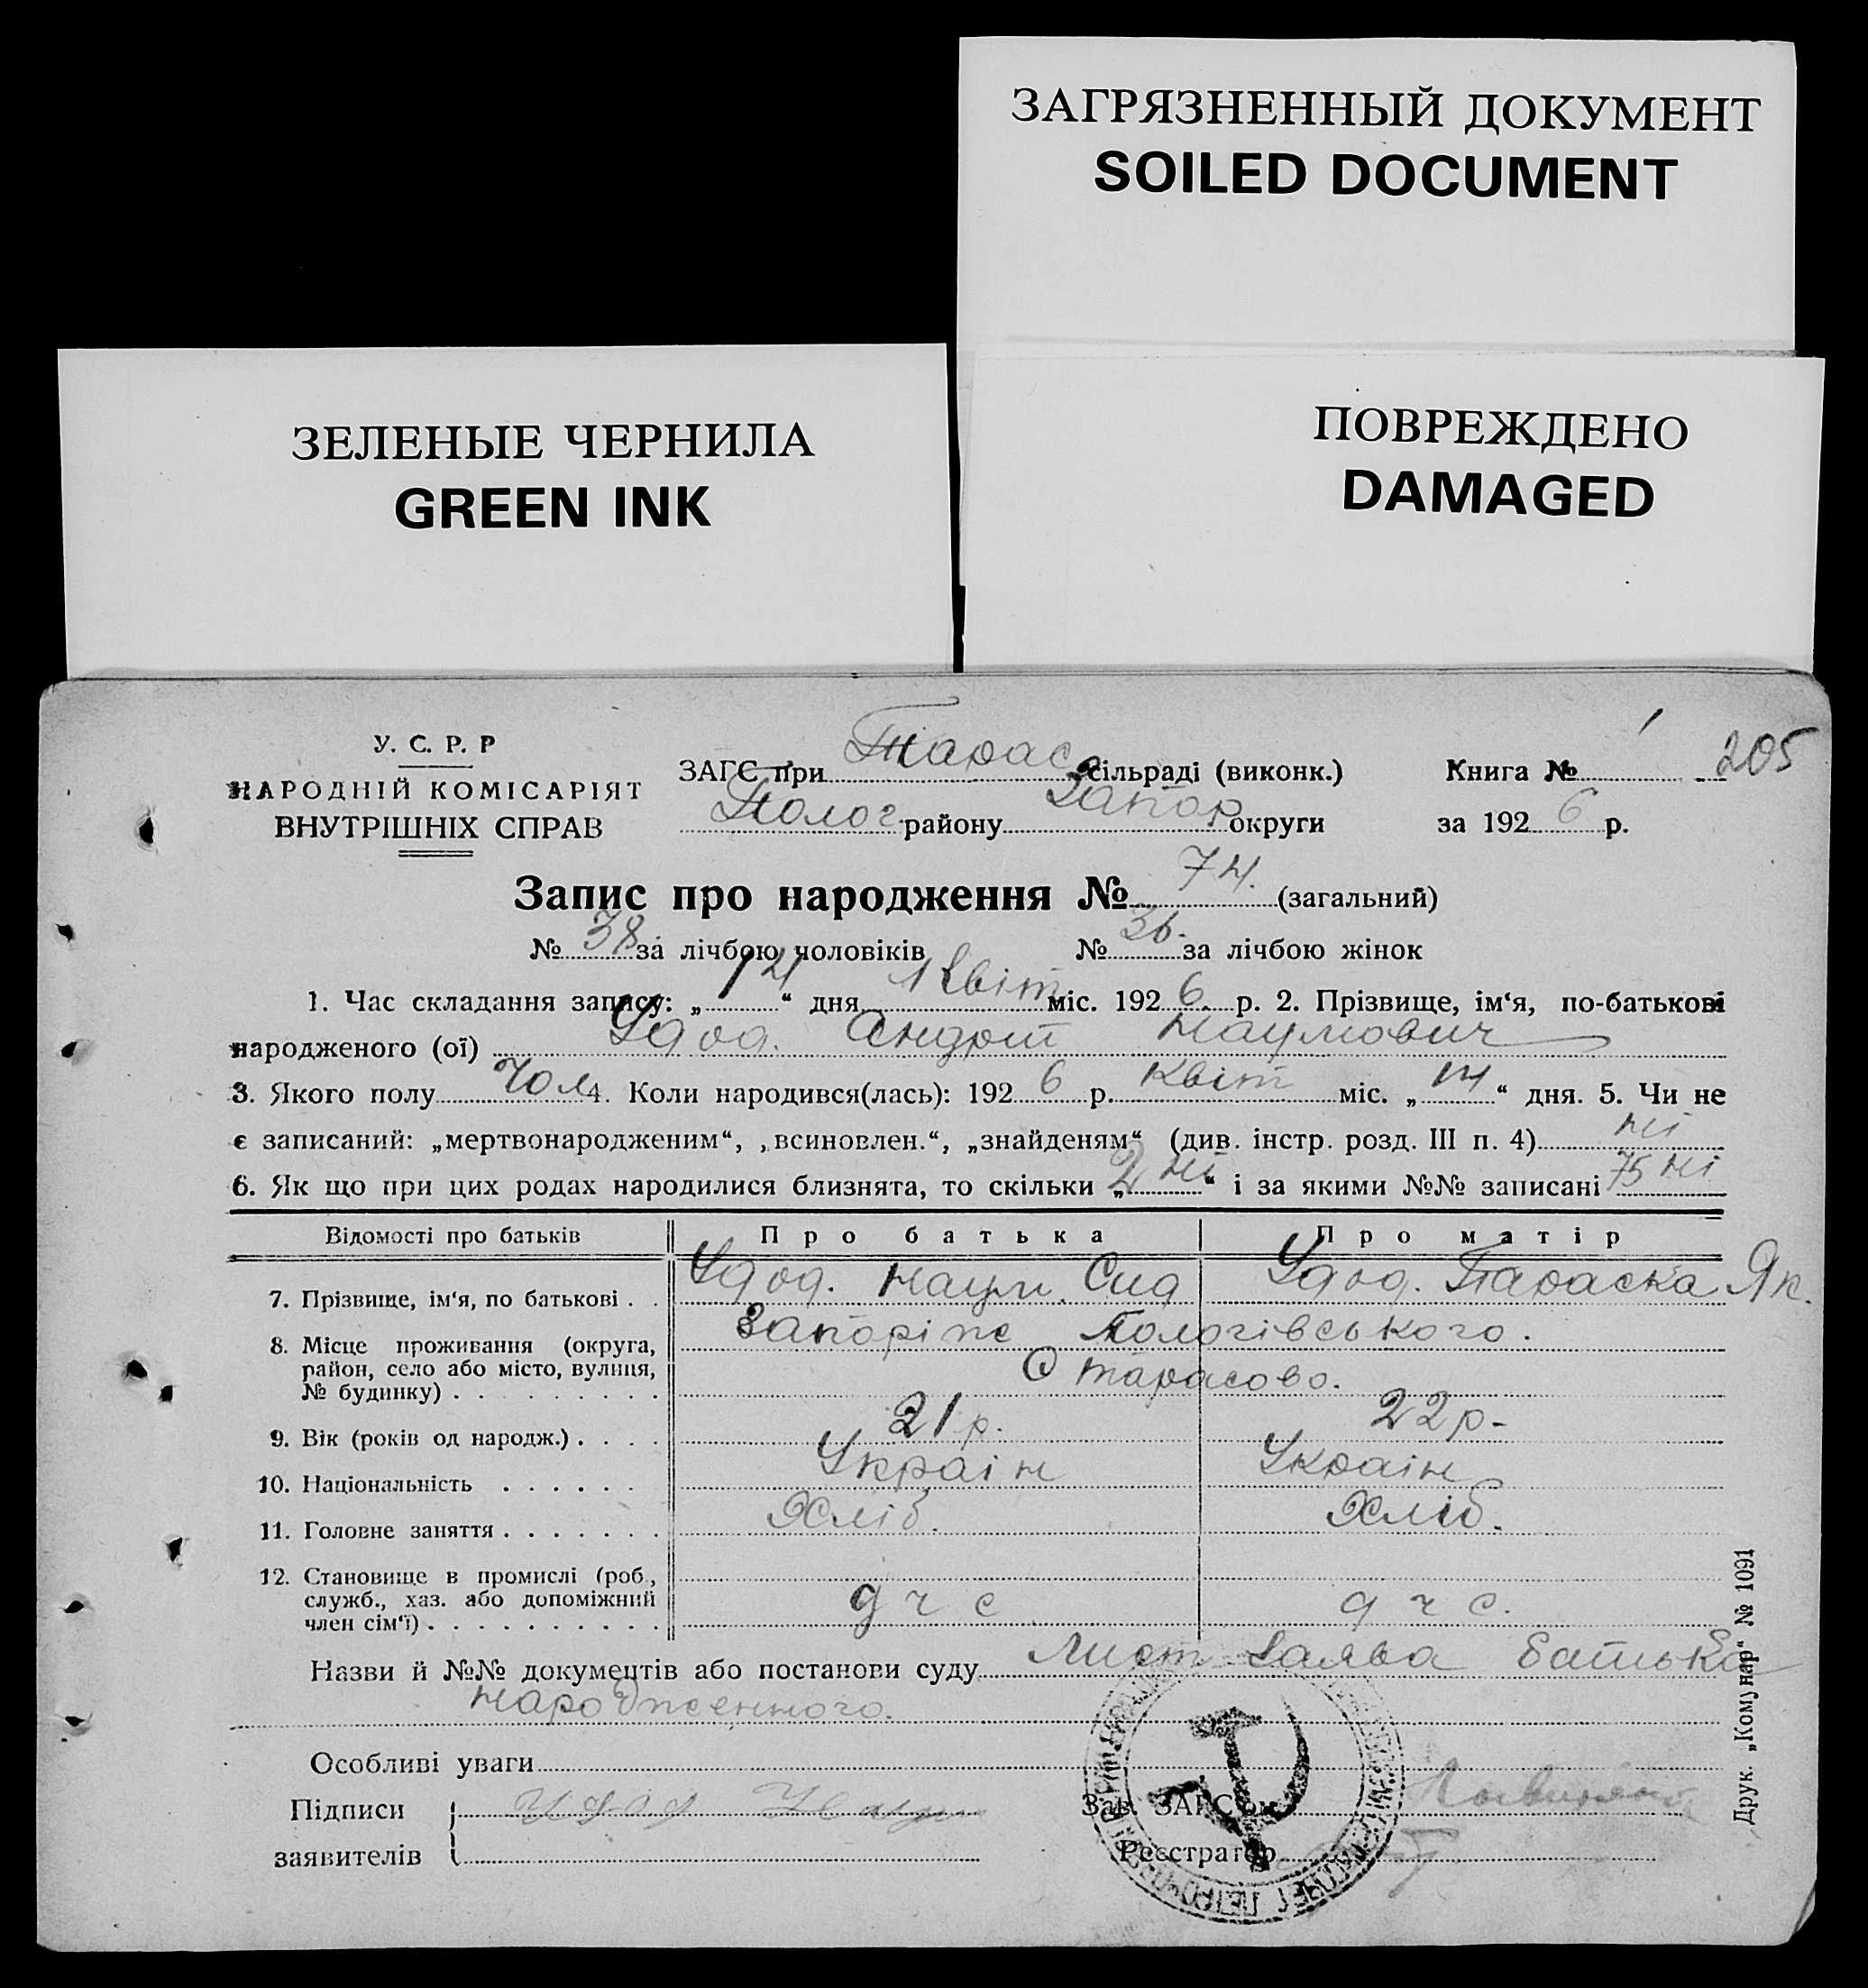 ЗАГРЯЗНЕННЫЙ ДОКУМЕНТ
SOILED DOCUMENT
ЗЕЛЕНЫЕ ЧЕРНИЛА
GREEN INK
ПОВРЕЖДЕНО
DAMAGED
У. С. Р. Р
НАРОДНІЙ КОМІСАРІЯТ
ВНУТРІШНІХ СПРАВ
ЗАГС при Тарас сільраді (виконк.) Книга № 1 205
Полог району Запор округи за 1926 р.
Запис про народження № 74. (загальний)
№ 38 за лічбою чоловіків № 36. за лічбою жінок
1. Час складання запису: „14“ дня Квіт міс. 1926 р. 2. Прізвище, ім‘я, по-батькові
народженого (ої) Удод. Андрит Наумович
3. Якого полу Чол 4. Коли народився(лась): 1926 р. Квіт міс. „14“ дня. 5. Чи не
є записаний: „мертвонародженим“, „всиновлен.“, „знайденям“ (див. інстр. розд. III п. 4) ні
6. Як що при цих родах народилися близнята, то скільки „2 ні“ і за якими №№ записані 75 ні
Відомості про батьків Про батька Про матір
7. Прізвище, ім‘я, по батькові . . Удод. Наум. Сид Удод. Параска Як.
8. Місце проживання (округа, район, село або місто, вулиця, № будинку) . . . . . . . . . Запоріже Пологівського.
С Тарасово.
9. Вік (років од народж.) . . . . 21 р. 22 р-
10. Національність . . . . . . Україн Україн
11. Головне заняття . . . . . . . Хліб. Хліб.
12. Становище в промислі (роб., служб., хаз. або допоміжний член сім‘ї) . . . . . . . . . . д ч с д ч с.
Назви й №№ документів або постанови суду Лист Заява батька
народженного.
Особливі уваги
Підписи Удод Наум Зав. ЗАГС‘ом
заявителів Реєстратор
Друк. „Комунар“ № 1091